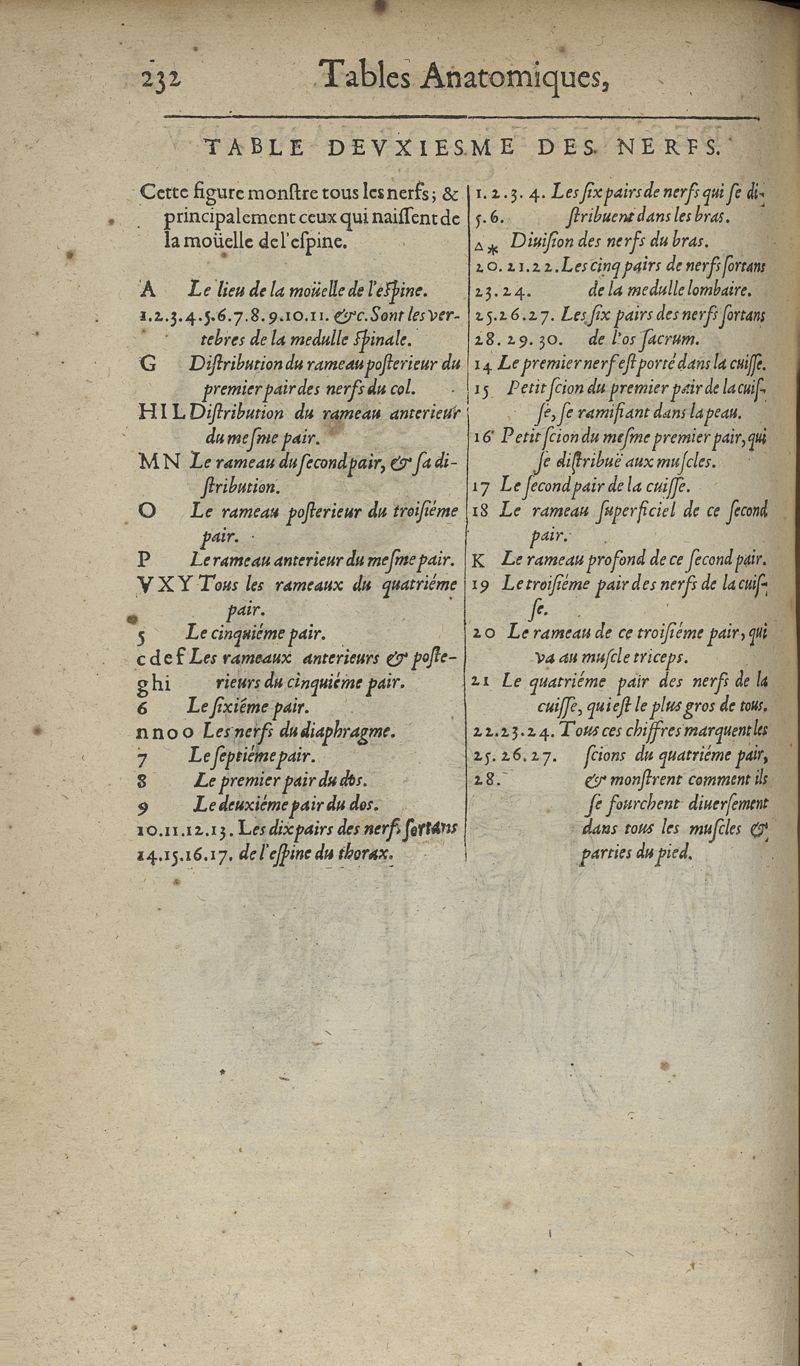 232 Tables Anatomiques,
TABLE DEVXIESME DES NERFS.
Cette figure monſtre tous les nerfs; &
principalement ceux qui naiſſent de
la moüelle de l'eſpine.
A Le lieu de la moüelle de l'eſpine.
1.2.3.4.5.6.7.8.9.10.11. &c. Sont les ver-
tebres de la medulle ſpinale.
G Diſtribution du rameau poſterieur du
premier pair des nerfs du col.
H I L Diſtribution du rameau anterieur
du meſme pair.
M N Le rameau du ſecond pair, & ſa di-
ſtribution.
O Le rameau poſterieur du troiſiéme
pair.
P Le rameau anterieur du meſme pair.
V X Y Tous les rameaux du quatriéme
pair.
5 Le cinquiéme pair.
c d e f Les rameaux anterieurs & poſte-
g h i rieurs du cinquiéme pair.
6 Le ſixiéme pair.
n n o o Les nerfs du diaphragme.
7 Le ſeptiéme pair.
8 Le premier pair du dos.
9 Le deuxiéme pair du dos.
10.11.12.13. Les dix pairs des nerfs ſortans
14.15.16.17. de l'eſpine du thorax.
1.2.3.4. Les ſix pairs de nerfs qui ſe di-
5.6. ſtribuent dans les bras.
△ * Diuiſion des nerfs du bras.
20.21.22. Les cinq pairs de nerfs ſortans
23.24. de la medulle lombaire.
25.26.27. Les ſix pairs des nerfs ſortans
28.29.30. de l'os ſacrum.
14 Le premier nerf eſt porté dans la cuiſſe.
15 Petit ſcion du premier pair de la cuiſ-
ſe, ſe ramifiant dans la peau.
16 Petit ſcion du meſme premier pair, qui
ſe diſtribuë aux muſcles.
17 Le ſecond pair de la cuiſſe.
18 Le rameau ſuperficiel de ce ſecond
pair.
K Le rameau profond de ce ſecond pair.
19 Le troiſiéme pair des nerfs de la cuiſ-
ſe.
20 Le rameau de ce troiſiéme pair, qui
va au muſcle triceps.
21 Le quatriéme pair des nerfs de la
cuiſſe, qui eſt le plus gros de tous.
22.23.24. Tous ces chiffres marquent les
25.26.27. ſcions du quatriéme pair,
28. & monſtrent comment ils
ſe fourchent diuerſement
dans tous les muſcles &
parties du pied.